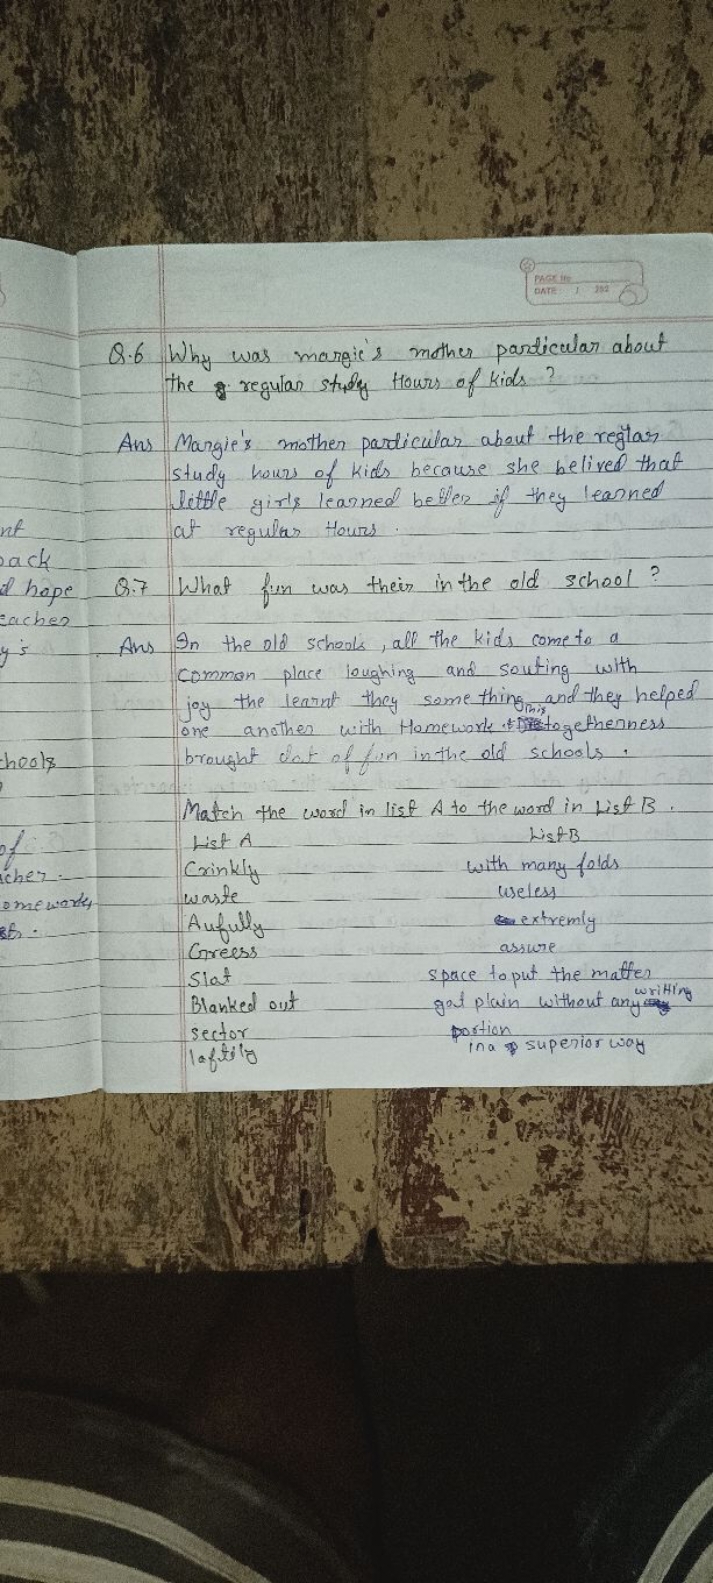 PAGE No
DATE / 202
Q.6 Why was margie's mother particular about
the regular study Hours of kids ?
Ans Margie's mother particular about the reglar
study hours of kids because she belived that
little girls learned better if they learned
at regular Hours .
Q.7 What fun was their in the old school ?
Ans In the old schools , all the kids come to a
common place loughing and souting with
joy the learnt they some thing and they helped
one another with Homework . This togetherness
brought dat of fun in the old schools .
Match the word in list A to the word in List B .
List A List B
Crinkly with many folds
waste useless
Aufully extremly
Greess assure
Slat space to put the matter
Blanked out got plain without any writting
sector portion
laftily in a superior way
nt
back
d hope
eacher
y's
chools
of
acher .
omeworks